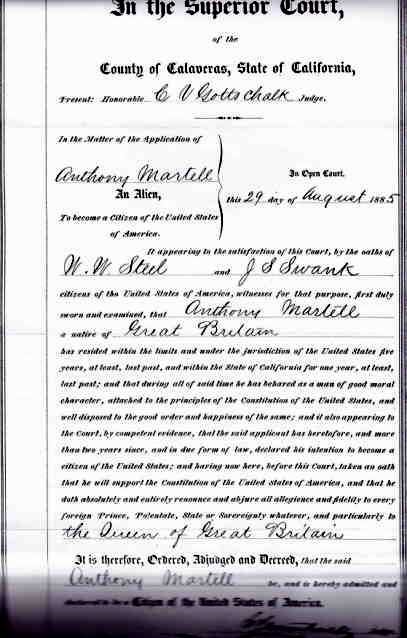 In the Superior Court,
of the
County of Calaveras, State of California,
Present: Honorable C V Gottschalk Judge.
In the Matter of the Application of
Anthony Martell
An Alien,
To become a Citizen of the United States
of America.
In Open Court,
this 29 day of August 1885
It appearing to the satisfaction of this Court, by the oaths of
W. W. Steel and J S Swank
citizens of the United States of America, witnesses for that purpose, first duly
sworn and examined, that Anthony Martell
a native of Great Britain
has resided within the limits and under the jurisdiction of the United States five
years, at least, last past, and within the State of California for one year, at least,
last past; and that during all of said time he has behaved as a man of good moral
character, attached to the principles of the Constitution of the United States, and
well disposed to the good order and happiness of the same; and it also appearing to
the Court, by competent evidence, that the said applicant has heretofore, and more
than two years since, and in due form of law, declared his intention to become a
citizen of the United States; and having now here, before this Court, taken an oath
that he will support the Constitution of the United States of America, and that he
doth absolutely and entirely renounce and abjure all allegiance and fidelity to every
foreign Prince, Potentate, State or Sovereignty whatever, and particularly to
the Queen of Great Britain
It is therefore, Ordered, Adjudged and Decreed, that the said
Anthony Martell be, and is hereby admitted and
declared to be a Citizen of the United States of America.